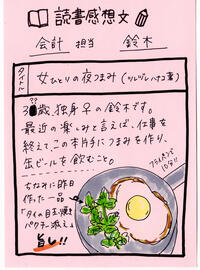 読書感想文
会計 担当 鈴木
タイトル
女ひとりの夜つまみ (ツレヅレハナコ著)
3??歳、独身♀の鈴木です。
最近の楽しみと言えば、仕事を
終えて、この本片手につまみを作り、
缶ビールを飲むこと。
フライパンで
10分!!
ちなみに昨日
作った一品
「タイの目玉焼き
パクチー添え」
旨し!!